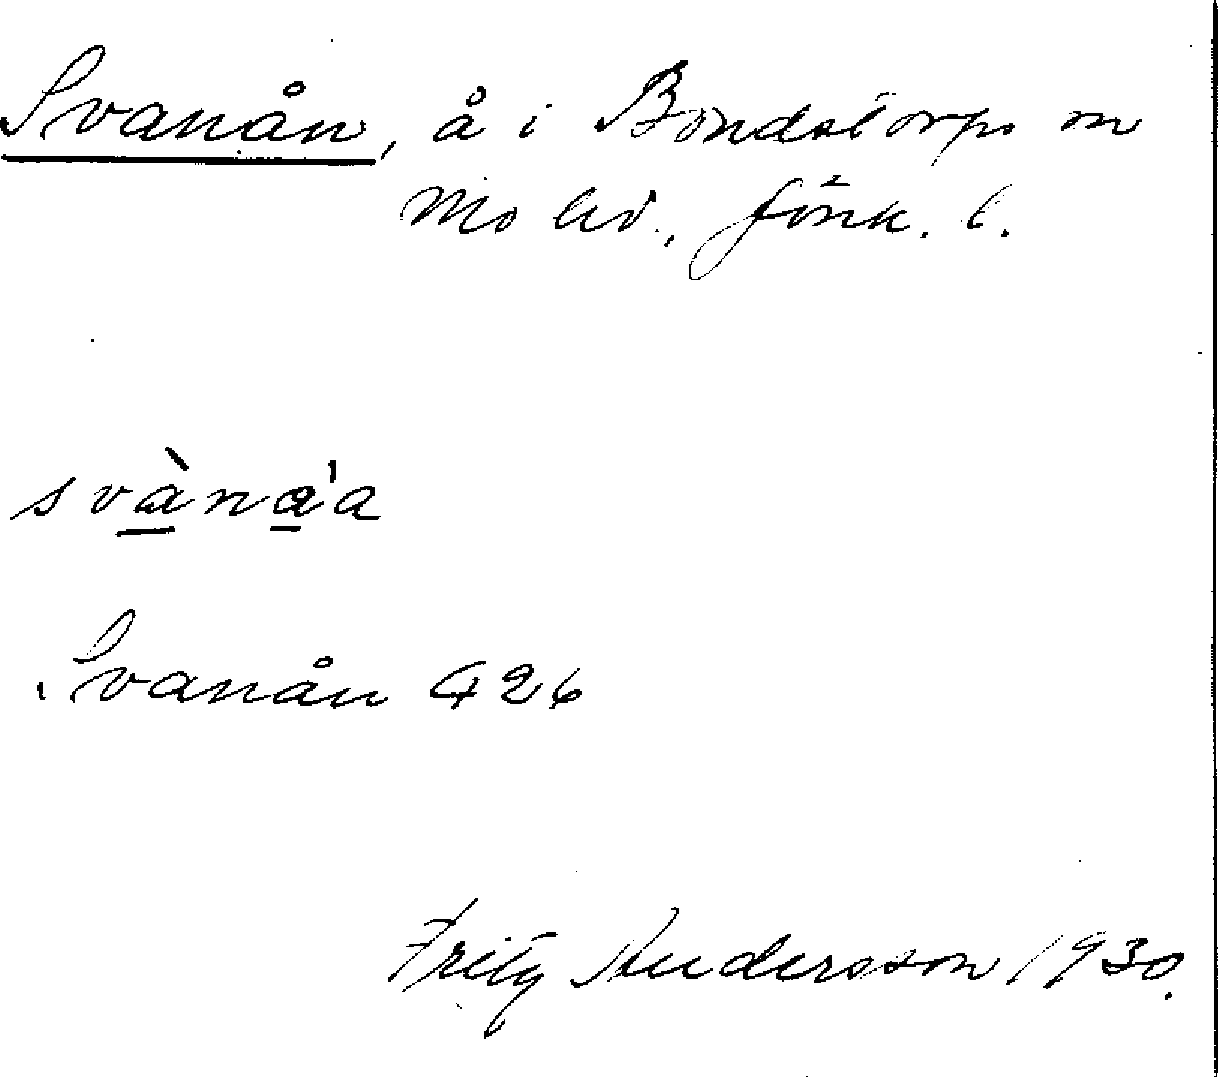 Svanån, å i Bondstorps sn
Mo hd., Jönk. l.
svàna'a
Svanån G 26
Fritz Andersson 1930.